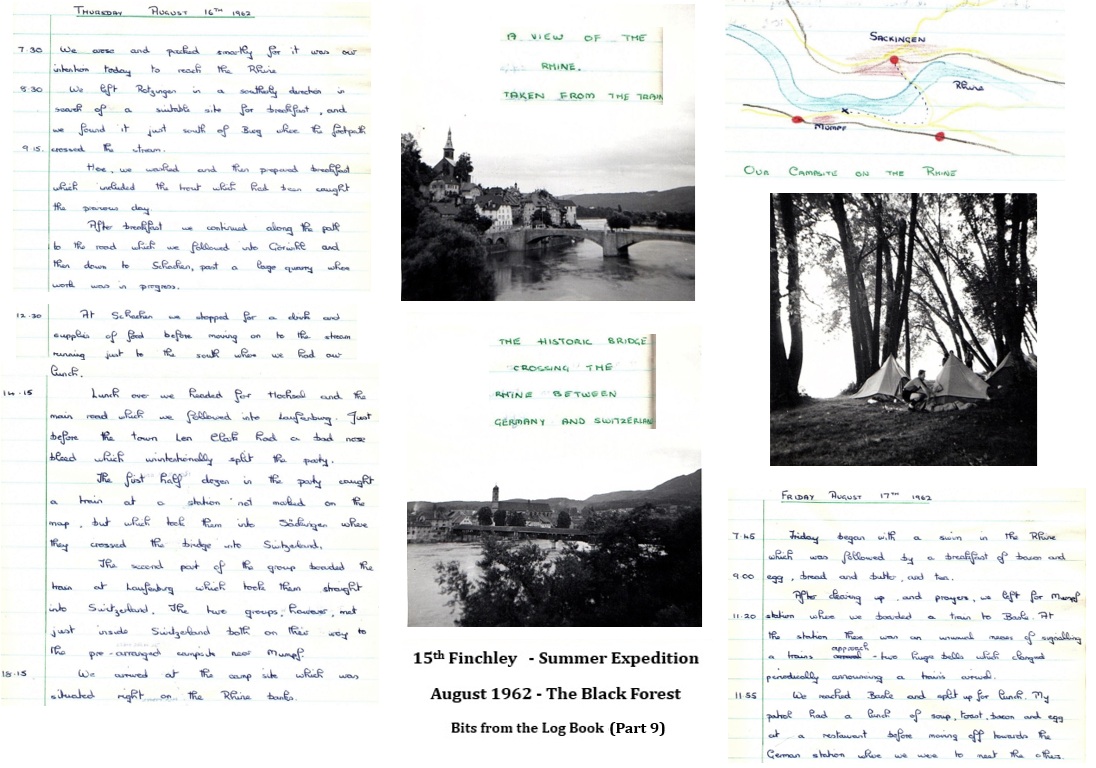 THURSDAY AUGUST 16TH 1962
7.30 We arose and packed smartly for it was our
intention today to reach the Rhine
8.30 We left Rotzingen in a southerly direction in
search of a suitable site for breakfast, and
we found it just south of Burg where the footpath
9.15. crossed the stream.
Here, we washed and then prepared breakfast
which included the trout which had been caught
the previous day.
After breakfast we continued along the path
to the road which we followed into Görwihl and
then down to Schachen, past a large quarry where
work was in progress.
12.30 At Schachen we stopped for a drink and
supplies of food before moving on to the stream
running just to the south where we had our
lunch.
14.15 Lunch over we headed for Hochsal and the
main road which we followed into Laufenburg. Just
before the town Len Clark had a bad nose
bleed which unintentionally split the party.
The first half dozen in the party caught
a train at a station not marked on the
map, but which took them into Säckingen where
they crossed the bridge into Switzerland.
The second part of the group boarded the
train at Laufenburg which took them straight
into Switzerland. The two groups, however, met
just inside Switzerland both on their way to
the pre-arranged campsite near Mumpf.
18.15 We arrived at the camp site which was
situated right on the Rhine banks.
A VIEW OF THE
RHINE.
TAKEN FROM THE TRAIN
THE HISTORIC BRIDGE
CROSSING THE
RHINE BETWEEN
GERMANY AND SWITZERLAN
15th Finchley - Summer Expedition
August 1962 - The Black Forest
Bits from the Log Book (Part 9)
SACKINGEN
Rhine
MUMPF
OUR CAMPSITE ON THE RHINE
FRIDAY AUGUST 17TH 1962
7.45 Friday began with a swim in the Rhine
which was followed by a breakfast of bacon and
9.00 egg, bread and butter, and tea.
After clearing up, and prayers, we left for Mumpf
11.20 station where we boarded a train to Basle. At
the station there was an unusual means of signalling
a trains approach - two huge bells which clanged
periodically announcing a train's arrival.
11.55 We reached Basle and split up for lunch. My
patrol had a lunch of soup, toast, bacon and egg
at a restaurant before moving off towards the
German station where we were to meet the others.